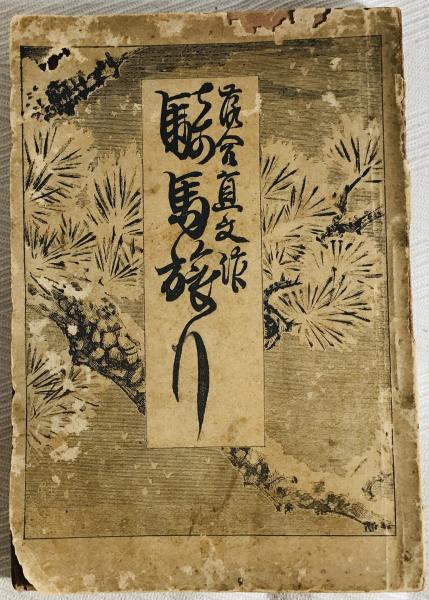 落合直文作
騎馬旅行